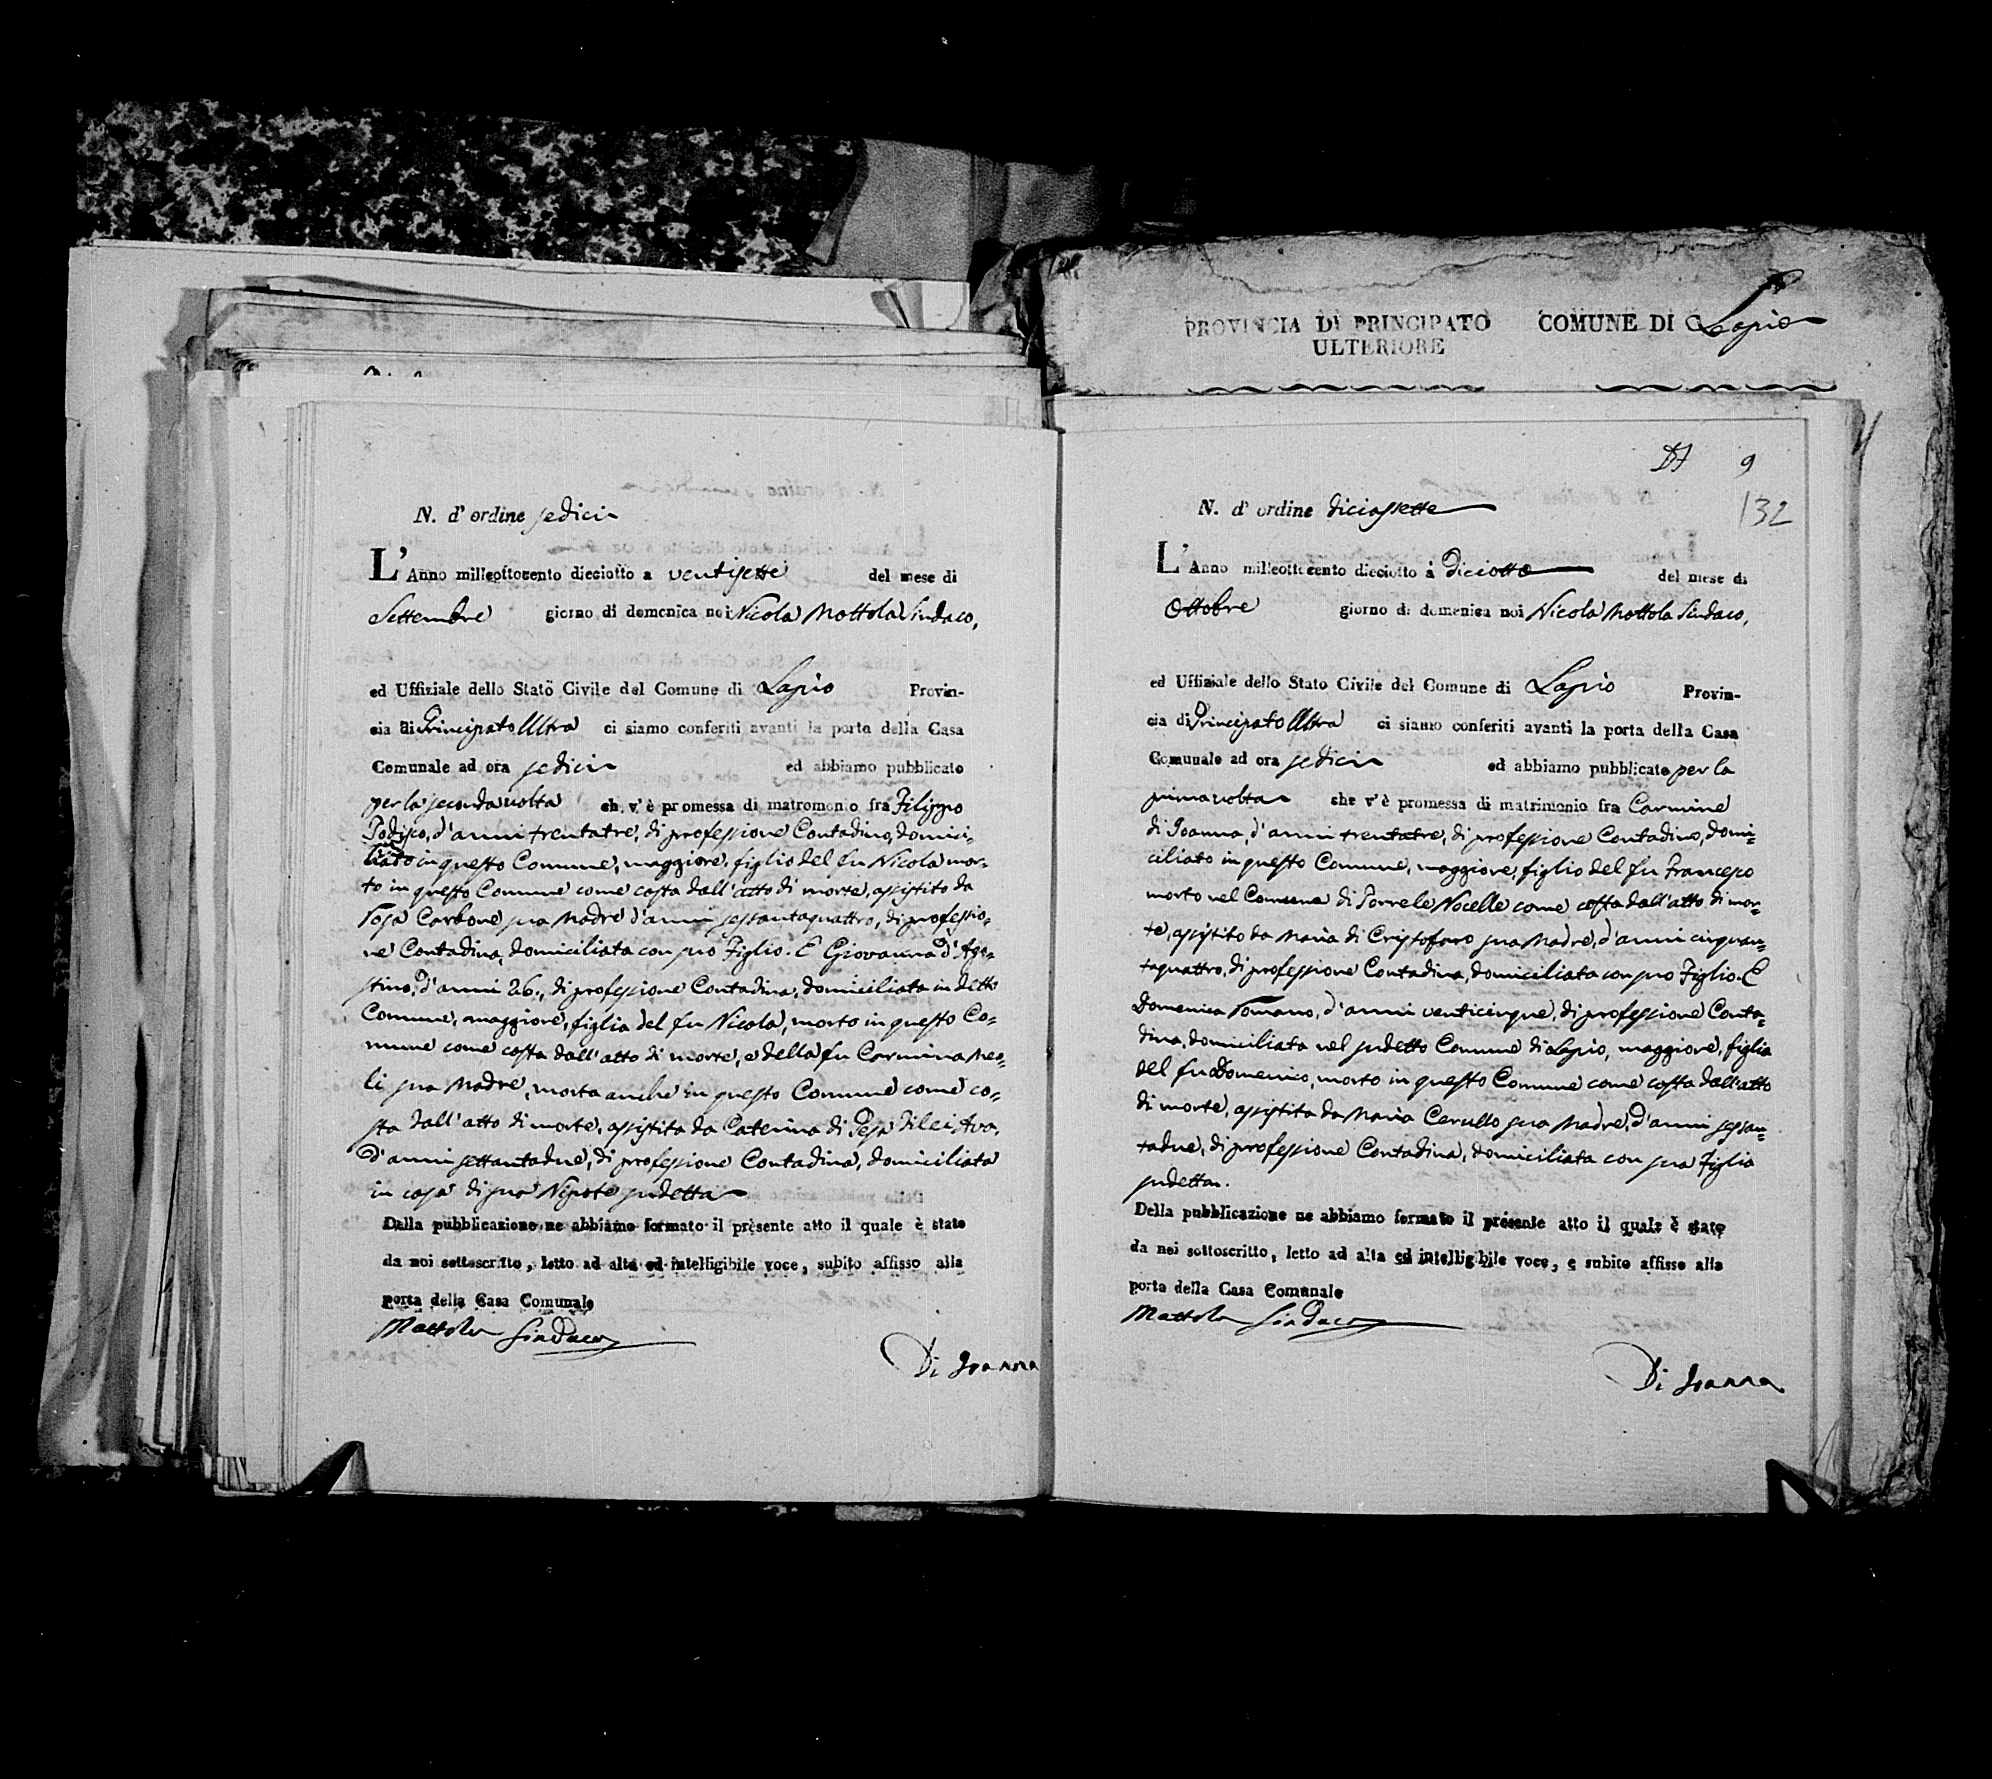 PROVINCIA DI PRINCIPATO
ULTERIORE
COMUNE DI Lapio
N. d' ordine sedici
L'Anno milleottocento dieciotto a ventisette del mese di
Settembre giorno di domenica noi Nicola Mottola Sindaco,
ed Uffiziale dello Stato Civile del Comune di Lapio Provin-
cia di Principato Ultra ci siamo conferiti avanti la porta della Casa
Comunale ad ora sedici ed abbiamo pubblicato
per la seconda volta ch. v'è promessa di matromonio fra Filippo
d'anni trentatre, di professione Contadino, domici-
liato in questo Comune, maggiore, figlio del fu Nicola mor-
to in questo Comune come costa dall'atto di morte, assistito da
Rosa Carbone sua Madre d'anni sessantaquattro, di professio-
ne Contadina, domiciliata con suo Figlio. E Giovanna d'Ago-
stino, d'anni 26., di professione Contadina, domiciliata in detto
Comune, maggiore, figlia del fu Nicola, morto in questo Co-
mune come costa dall'atto di morte, e della fu Carmina Meo-
li sua Madre, morta anche in questo Comune come co-
sta dall'atto di morte, assistita da Caterina di Pesa di lei Ava,
d'anni settantadue, di professione Contadina, domiciliata
in casa di sua Nipote sudetta
Dalla pubblicazione ne abbiamo formato il presente atto il quale è stato
da noi sottoscritto, letto ad alta ed intelligibile voce, subito affisso alla
porta della Casa Comunale
Mottola Sindaco
Di Ioanna
9
132
N. d' ordine diciassette
L'Anno milleottocento dieciotto a Diciotto del mese di
Ottobre giorno di domenica noi Nicola Mottola Sindaco,
ed Uffiziale dello Stato Civile del Comune di Lapio Provin-
cia di Principato Ultra ci siamo conferiti avanti la porta della Casa
Comunale ad ora sedici ed abbiamo pubblicato per la
prima volta che v'è promessa di matrimonio fra Carmine
di Ioanna, d'anni trentatre, di professione Contadino, domi-
ciliato in questo Comune, maggiore, figlio del fu Francesco
morto nel Comune di Torre le Nocelle come costa dall'atto di mor-
te, assistito da Maria di Cristofaro sua Madre, d'anni cinquan-
taquattro, di professione Contadina, domiciliata con suo Figlio. E
Domenica Romano, d'anni venticinque, di professione Conta-
dina, domiciliata nel sudetto Comune di Lapio, maggiore, figlia
del fu Domenico, morto in questo Comune come costa dall'atto
di morte, assistita da Maria Cerullo sua Madre, d'anni sessan-
tadue, di professione Contadina, domiciliata con sua Figlia
sudetta.
Della pubblicazione ne abbiamo formato il presente atto il quale è stato
da noi sottoscritto, letto ad alta ed intelligibile voce, e subito affisso alla
porta della Casa Comunale
Mottola Sindaco
Di Ioanna